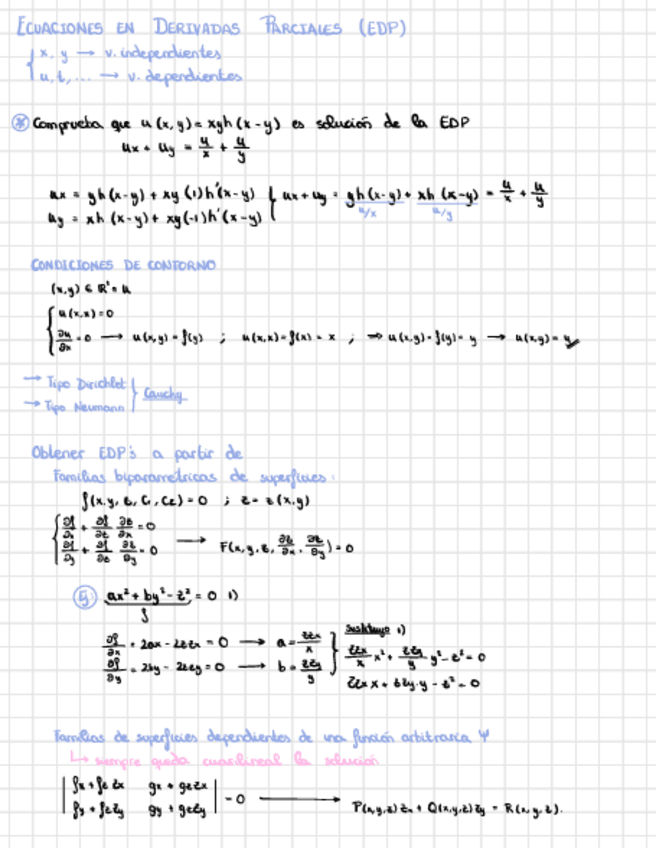 ECUACIONES EN DERIVADAS PARCIALES (EDP)
{ x, y → v. independientes
u, z, ... → v. dependientes
* Comprueba que u(x,y) = xyh(x-y) es solución de la EDP
ux + uy = u/x + u/y
ux = yh(x-y) + xy(1)h'(x-y) } ux + uy = yh(x-y) + xh(x-y) = u/x + u/y
uy = xh(x-y) + xy(-1)h'(x-y) u/x u/y
CONDICIONES DE CONTORNO
(x,y) ∈ R² = u
{ u(x,x) = 0
∂u/∂x = 0 → u(x,y) = f(y) ; u(x,x) = f(x) = x ; ⇒ u(x,y) = f(y) = y → u(x,y) = y
→ Tipo Dirichlet } Cauchy
→ Tipo Neumann
Obtener EDP's a partir de
Familias biparamétricas de superficies:
f(x,y,z,C₁,C₂) = 0 ; z = z(x,y)
{ ∂f/∂x + ∂f/∂z ∂z/∂x = 0
∂f/∂y + ∂f/∂z ∂z/∂y = 0 → F(x,y,z,∂z/∂x,∂z/∂y) = 0
5) ax² + by² - z² = 0 1)
f
∂f/∂x = 2ax - 2zzx = 0 → a = zzx/x } Sustituyo 1)
∂f/∂y = 2by - 2zzy = 0 → b = zzy/y zzx/x x² + zzy/y y² - z² = 0
zzx x + zzy·y - z² = 0
Familias de superficies dependientes de una función arbitraria Ψ
↳ siempre queda cuasilineal la solución
| fx + fz zx gx + gz zx |
| fy + fz zy gy + gz zy | = 0 → P(x,y,z) zx + Q(x,y,z) zy = R(x,y,z).